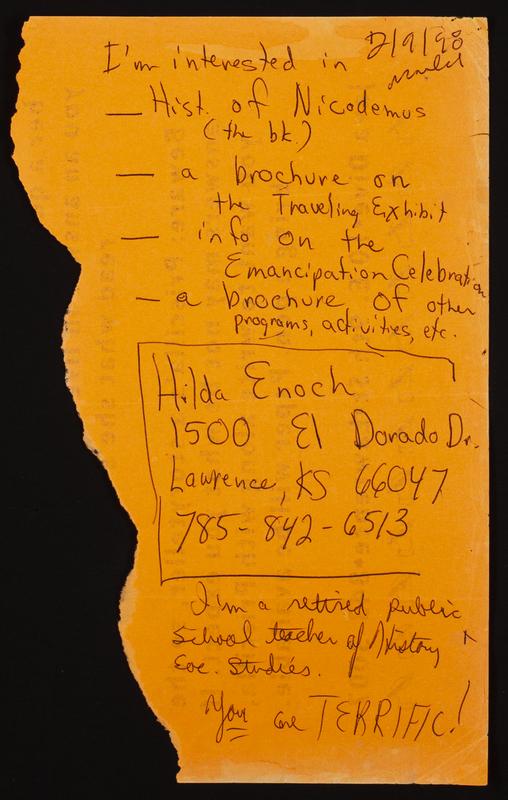 2/9/98
I'm interested in mailed
— Hist. of Nicodemus
(the bk.)
— a brochure on
the Traveling Exhibit
— info on the
Emancipation Celebration
— a brochure of other
programs, activities, etc.
Hilda Enoch
1500 El Dorado Dr.
Lawrence, KS 66047
785-842-6513
I'm a retired public
School teacher of History
Soc. Studies.
You are TERRIFIC!